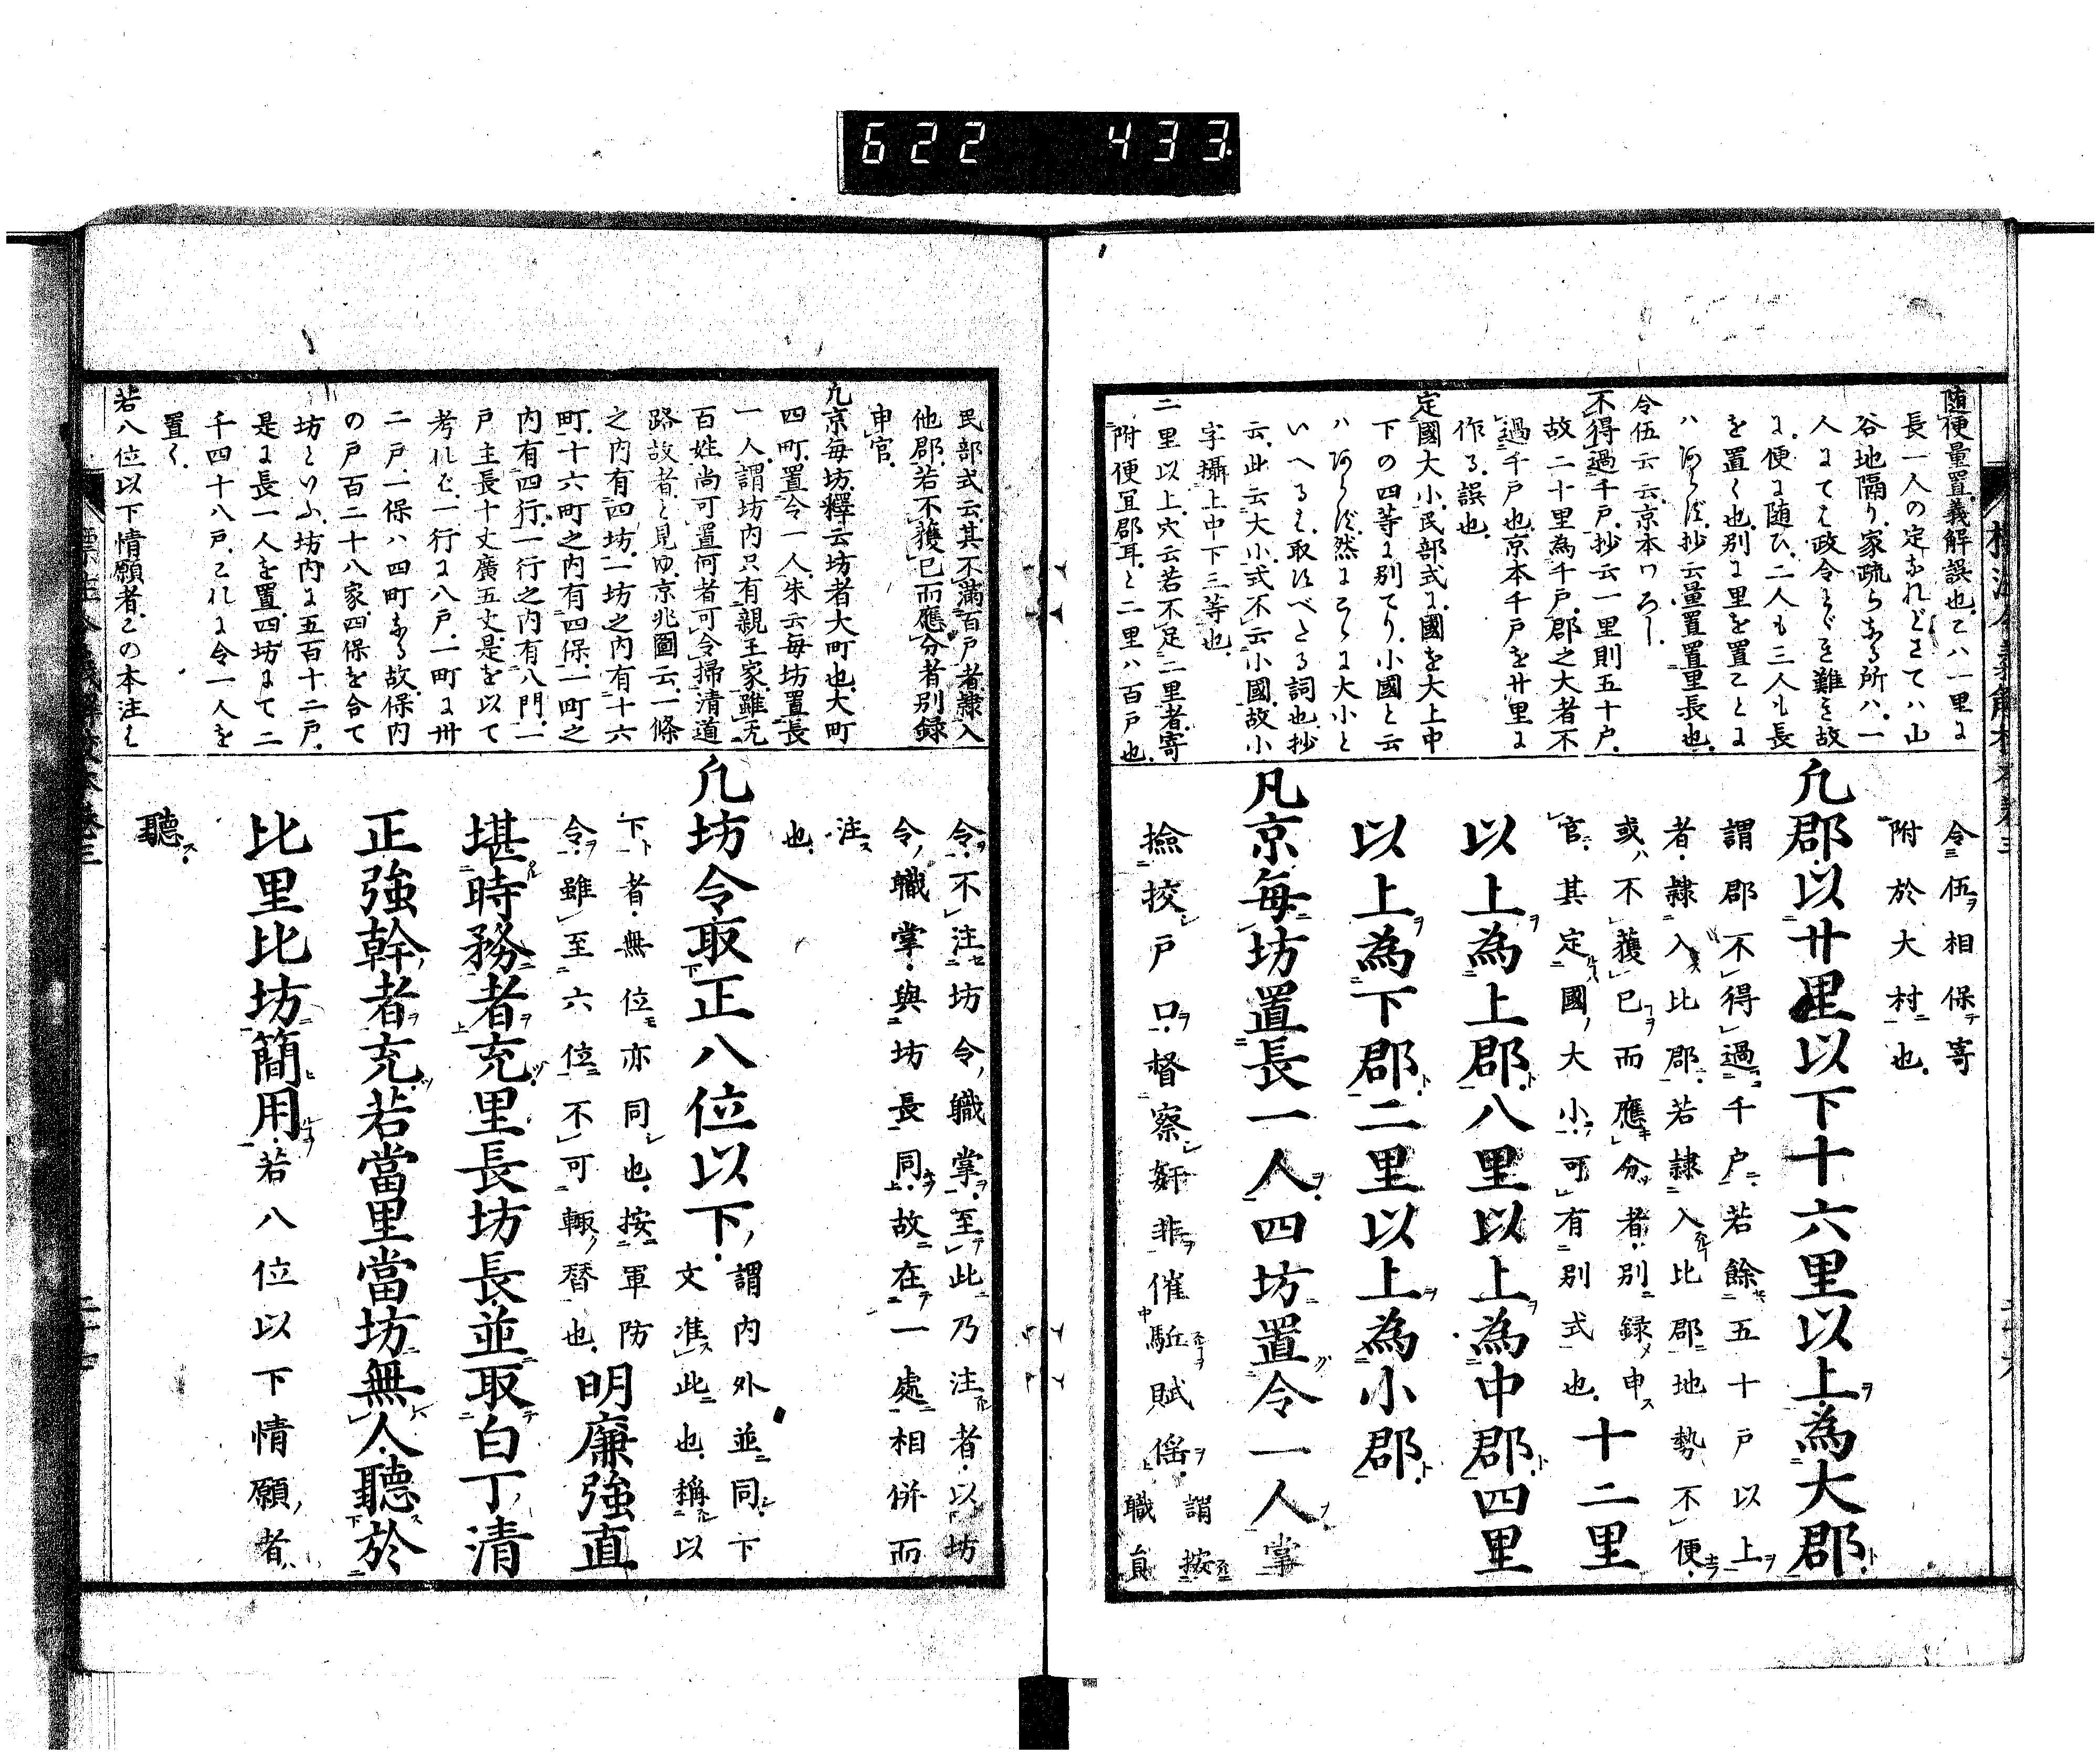 622 433
随便量置義解誤也こハ一里に
長一人の定なれどさてハ山
谷地隔り家疏らなる所ハ一
人にてハ政令よび難き故
に便に随ひ二人も三人も長
を置く也別に里を置ことに
ハあらず抄云量置置里長也
令伍云云京本ワろし
不得過千戸抄云一里則五十戸
故二十里為千戸郡之大者不
過千戸也京本千戸を廿里に
作る誤也
定國大小民部式に國を大上中
下の四等に別てり小國と云
ハあらず然にこゝに大小と
いへるハ取すべたる詞也抄
云此云大小式不云小國故小
字攝上中下三等也
二里以上穴云若不足二里者寄
附便宜郡耳と二里ハ百戸也
令伍相保寄
附於大村也
凡郡以廿里以下十六里以上為大郡
謂郡不得過千戸若餘五十戸以上
者隷入比郡若隷入比郡地勢不便
或不獲已而應分者別録申
官其定國大小可有別式也
十二里
以上為上郡八里以上為中郡四里
以上為下郡二里以上為小郡
凡京毎坊置長一人四坊置令一人掌
撿挍戸口督察姧非催駈賦徭
謂按
職員
民部式云其不滿百戸者隷入
他郡若不獲已而應分者別録
申官
凡京毎坊釋云坊者大町也大町
四町置令一人朱云毎坊置長
一人謂坊内只有親王家雖无
百姓尚可置何者可令掃清道
路故者と見ゆ京兆圖云一條
之内有四坊一坊之内有十六
町十六町之内有四保一町之
内有四行一行之内有八門一
戸主長十丈廣五丈是を以て
考れバ一行に八戸一町に卅
二戸一保ハ四町なる故保内
の戸百二十八家四保を合て
坊といふ坊内に五百十二戸
是に長一人を置四坊にて二
千四十八戸これに令一人を
置く
若八位以下情願者この本注ハ
令不注坊令職掌至此乃注者以坊
令職掌與坊長同故在一處相併而
注
也
凡坊令取正八位以下
謂内外並同下
文准此也稱以
下者無位亦同也按軍防
令雖至六位不可輙替也
明廉強直
堪時務者充里長坊長並取白丁清
正強幹者充若當里當坊無人聽於
比里比坊簡用若八位以下情願者
聽